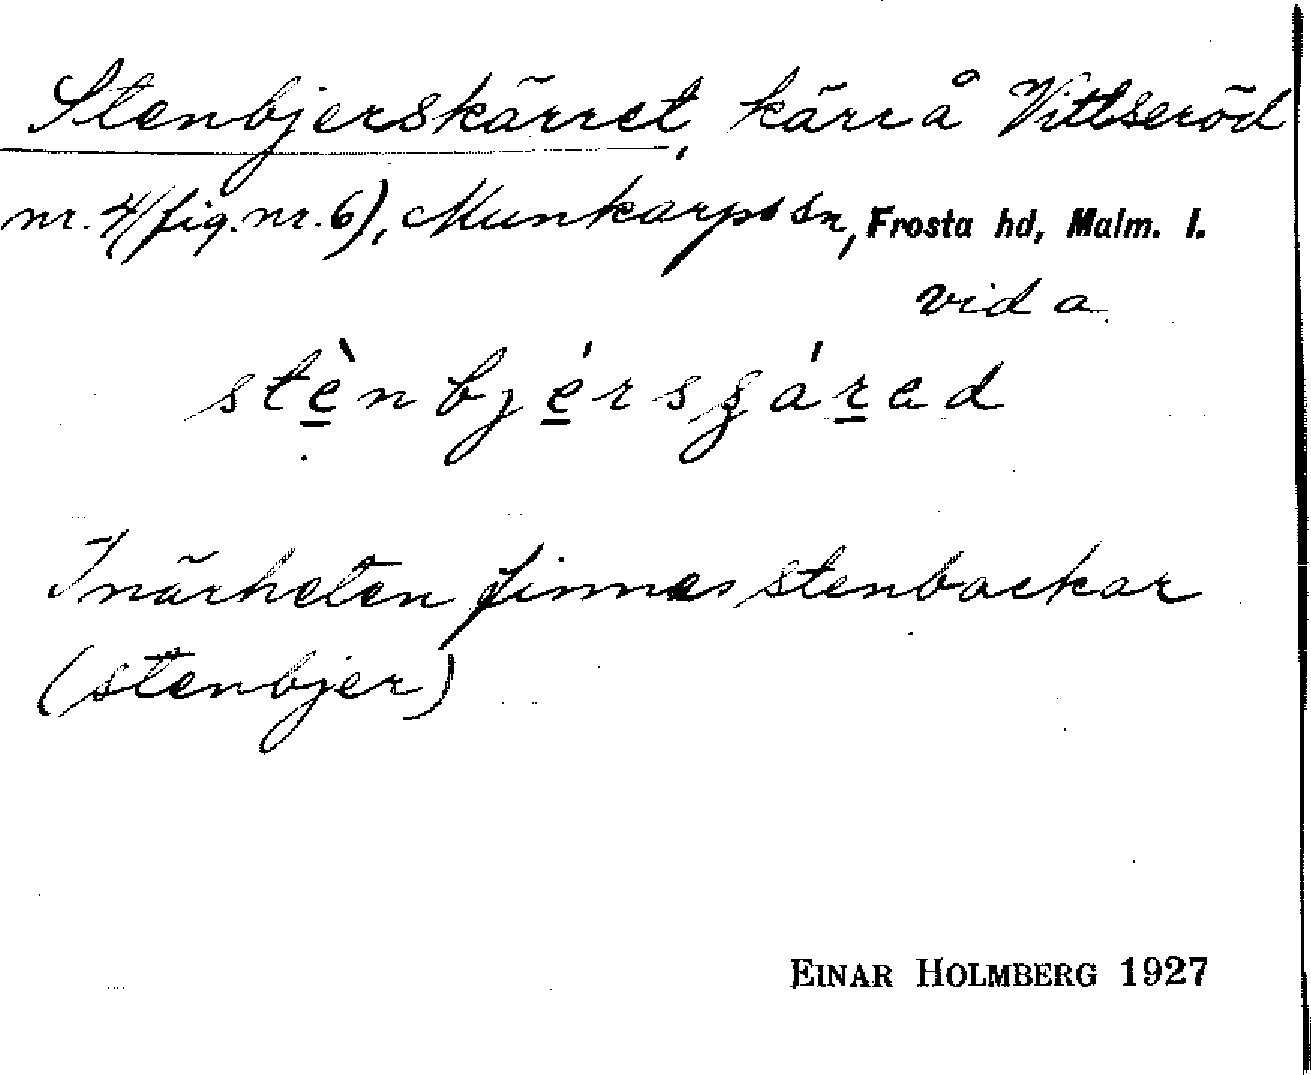 Stenbjerskärret, kärr å Vittseröd
nr. 4 (fig. nr. 6), Munkarps sn, Frosta hd, Malm. l.
vid a.
stènbjérsgáred
I närheten finnes stenbackar
(stenbjer)
EINAR HOLMBERG 1927